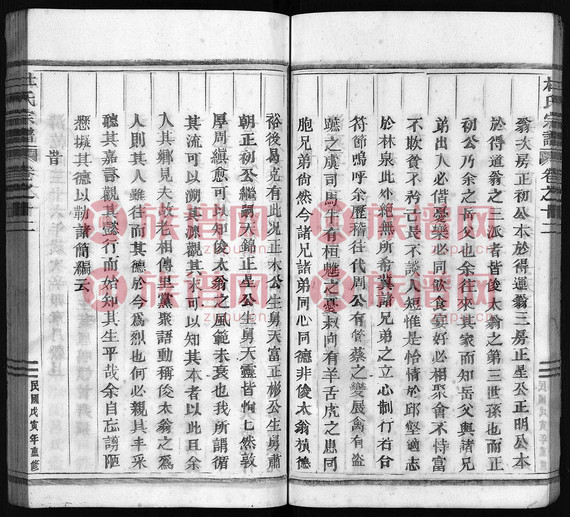 杜氏宗譜
卷之
民國戊寅年重修
翁次房正初公本於得運翁三房正星公正明公本
於得道翁之三派者皆俊太翁之第三世孫也而正
初公乃余之岳父也余往來其家而知岳父與諸兄
弟出入必偕憂樂必同飲食宴好必相聚會不恃富
不欺貧不矜古長不談人短惟是怡情於邱壑適志
於林泉此外絕無所希冀諸兄弟之立心制行若合
符節嗚呼余歷稽往代周公有管蔡之變展禽有盜
蹠之虞司馬牛有桓魋之憂叔向有羊舌虎之患同
胞兄弟尚然今諸兄諸弟同心同德非俊太翁積德
裕後曷克有此況正木公生舅天富正彬公生舅肅
朝正初公繼嗣天錦正星公生舅天靈皆恂七然敦
厚周縝愈可以知俊太翁之風範未衰也我所謂循
其流可以溯其源觀其末可以知其本者以此且余
入其鄉見夫故老相傳里黨聚語動稱俊太翁之為
人則其人雖往而其德於今為烈也何必親其丰采
聽其嘉言觀其懿行而始知其生平哉余自忘謭陋
懸擬其德以勒諸簡編云
昔
杜氏宗譜
卷之
民國戊寅年重修
族譜网
族譜网
族譜网
族譜网